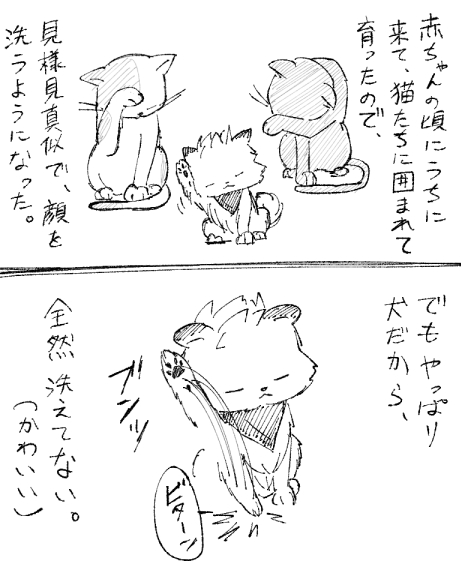 赤ちゃんの頃にうちに
来て、猫たちに囲まれて
育ったので、
見様見真似で、顔を
洗うようになった。
でもやっぱり
犬だから、
ブンッ
ビターン
全然洗えてない。
(かわいい)